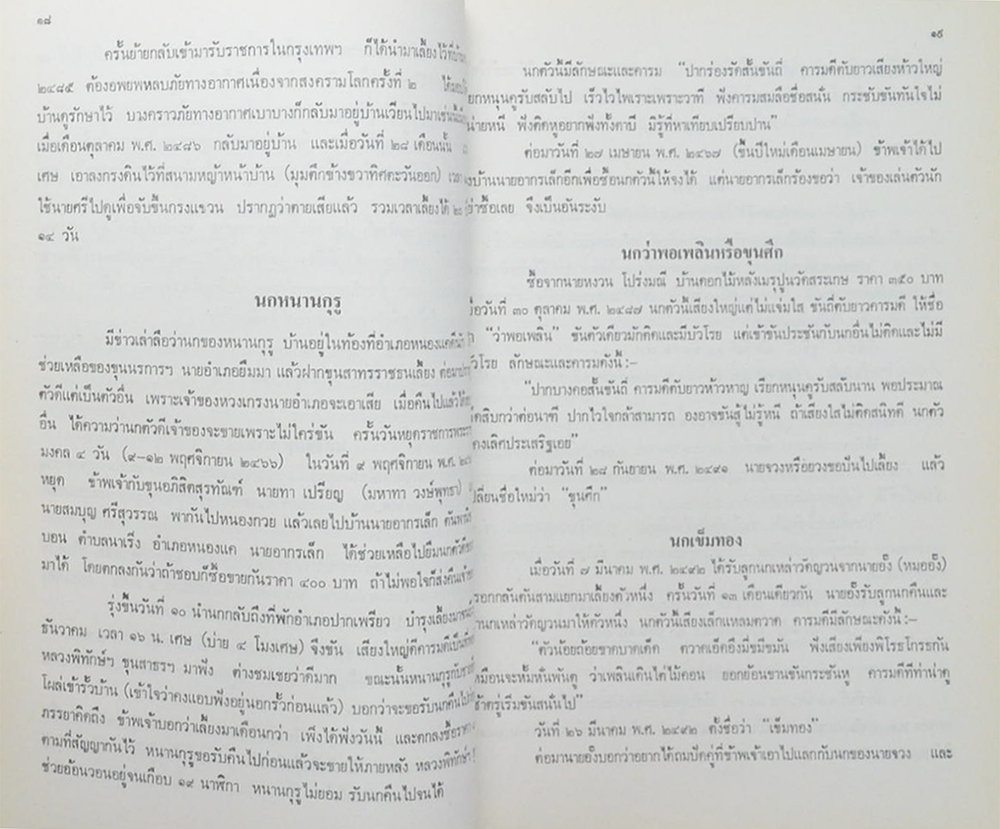 ๑๘
ครั้นย้ายกลับเข้ามารับราชการในกรุงเทพฯ ก็ได้นำมาเลี้ยงไว้ที่บ้าน
๒๔๘๕ ต้องอพยพหลบภัยทางอากาศเนื่องจากสงครามโลกครั้งที่ ๒
บ้านดูรักษาไว้ บางคราวภัยทางอากาศเบาบางก็กลับมาอยู่บ้านเวียนไปมาเช่นนี้
เมื่อเดือนตุลาคม พ.ศ. ๒๔๘๖ กลับมาอยู่บ้าน และเมื่อวันที่ ๒๘ เดือนนั้น
เศษ เอาลงกรงดินไว้ที่สนามหญ้าหน้าบ้าน (มุมตึกข้างขวาทิศตะวันออก)
ใช้นายศรีไปดูเพื่อจับขึ้นกรงแขวน ปรากฏว่าตายเสียแล้ว รวมเวลาเลี้ยงได้ ๒
๑๔ วัน
นกหนานกุรู
มีข่าวเล่าลือว่านกของหนานกุรู บ้านอยู่ในท้องที่อำเภอหนองแคดีนัก
ช่วยเหลือของขุนนรการฯ นายอำเภอยืมมา แล้วฝากขุนสาทรราชธนเลี้ยง
ตัวดีแต่เป็นตัวอื่น เพราะเจ้าของหวงเกรงนายอำเภอจะเอาเสีย เมื่อคืนไปแล้ว
อื่น ได้ความว่านกตัวดีเจ้าของจะขายเพราะไม่ใคร่ขัน ครั้นวันหยุดราชการพระราช
มงคล ๔ วัน (๙–๑๒ พฤศจิกายน ๒๔๖๖) ในวันที่ ๙ พฤศจิกายน พ.ศ.
หยุด ข้าพเจ้ากับขุนอภิสิตสุรทัณฑ์ นายทา เปรียญ (มหาทา วงษ์พุทธา)
นายสมบุญ ศรีสุวรรณ พากันไปหนองกวย แล้วเลยไปบ้านนายอากรเล็ก
บอน ตำบลนาเริ่ง อำเภอหนองแค นายอากรเล็ก ได้ช่วยเหลือไปยืมนกตัว
มาได้ โดยตกลงกันว่าถ้าชอบก็ซื้อขายกันราคา ๔๐๐ บาท ถ้าไม่พอใจก็ส่งคืน
รุ่งขึ้นวันที่ ๑๐ นำนกกลับถึงที่พักอำเภอปากเพรียว บำรุงเลี้ยงมา
ธันวาคม เวลา ๑๖ น. เศษ (บ่าย ๔ โมงเศษ) จึงขัน เสียงใหญ่ดีคารมดี
หลวงพิทักษ์ฯ ขุนสาธรฯ มาฟัง ต่างชมเชยว่าดีมาก ขณะนั้นหนานกุรูกับ
โผล่เข้ารั้วบ้าน (เข้าใจว่าคงแอบฟังอยู่นอกรั้วก่อนแล้ว) บอกว่าจะขอรับนกคืนไป
ภรรยาคิดถึง ข้าพเจ้าบอกว่าเลี้ยงมาเดือนกว่า เพิ่งได้ฟังวันนี้ และตกลงซื้อราคา
ตามที่สัญญากันไว้ หนานกุรูขอรับคืนไปก่อนแล้วจะขายให้ภายหลัง หลวงพิทักษ์ฯ
ช่วยอ้อนวอนอยู่จนเกือบ ๑๙ นาฬิกา หนานกุรูไม่ยอม รับนกคืนไปจนได้
๑๙
นกตัวนี้มีลักษณะและคารม “ปากร่องรัดสั้นขันถี่ คารมดีกับยาวเสียงห้าวใหญ่
ยกหนุนคูรับสลับไป เร็วไวไพเราะเพราะวาที ฟังคารมสมลือชื่อสนั่น กระชับขันทันใจไม่
น่ายหนี ฟังติดหูอยากฟังทั้งตาปี มิรู้ที่หาเทียบเปรียบปาน”
ต่อมาวันที่ ๒๗ เมษายน พ.ศ. ๒๔๖๗ (ขึ้นปีใหม่เดือนเมษายน) ข้าพเจ้าได้ไป
บ้านนายอากรเล็กอีกเพื่อซื้อนกตัวนี้ให้จงได้ แต่นายอากรเล็กร้องขอว่า เจ้าของเล่นตัวนัก
ซื้อเลย จึงเป็นอันระงับ
นกว่าพอเพลินหรือขุนศึก
ซื้อจากนายหงวน โปร่งมณี บ้านดอกไม้หลังเมรุปูนวัดสระเกษ ราคา ๓๕๐ บาท
วันที่ ๓๐ ตุลาคม พ.ศ. ๒๔๘๗ นกตัวนี้เสียงใหญ่แต่ไม่แจ่มใส ขันถี่กับยาวคารมดี ให้ชื่อ
“ว่าพอเพลิน” ขันตัวเดียวมักติดและมีบัวโรย แต่เข้าขันประชันกับนกอื่นไม่ติดและไม่มี
บัวโรย ลักษณะและคารมดังนี้ :–
“ปากบางคอสั้นขันถี่ คารมดีกับยาวห้าวหาญ เรียกหนุนคูรับสลับนาน พอประมาณ
สิบกว่าต่อนาที ปากไวใจกล้าสามารถ องอาจขันสู้ไม่รู้หนี ถ้าเสียงใสไม่ติดสนิทดี นกตัว
เลิศประเสริฐเอย”
ต่อมาวันที่ ๒๘ กันยายน พ.ศ. ๒๔๙๑ นายจวงหรือยวงขอปันไปเลี้ยง แล้ว
เปลี่ยนชื่อใหม่ว่า “ขุนศึก”
นกเข็มทอง
เมื่อวันที่ ๗ มีนาคม พ.ศ. ๒๔๙๒ ได้รับลูกนกเหล่าวัดญวนจากนายอั๋ง (หมออั๋ง)
ตรอกกลันตันสามแยกมาเลี้ยงตัวหนึ่ง ครั้นวันที่ ๑๓ เดือนเดียวกัน นายอั๋งรับลูกนกคืนและ
นกเหล่าวัดญวนมาให้ตัวหนึ่ง นกตัวนี้เสียงเล็กแหลมกวาด คารมดีมีลักษณะดังนี้ :–
“ตัวน้อยถ้อยขาดบาดเด็ด ตวาดเอ็ดอึงมี่ขมีขมัน ฟังเสียงเพียงพิโรธโกรธกัน
เหมือนจะห้ำหั่นพันตู ว่าเพลินเดินได้ไม่ค่อน ยอกย้อนขานขันกระชั้นหู คารมดีทีท่าน่าดู
คูเริ่มขันสนั่นไป”
วันที่ ๒๖ มีนาคม พ.ศ. ๒๔๙๒ ตั้งชื่อว่า “เข็มทอง”
ต่อมานายอั๋งบอกว่าอยากได้ถมปัดคู่ที่ข้าพเจ้าเอาไปแลกกับนกของนายจวง และ